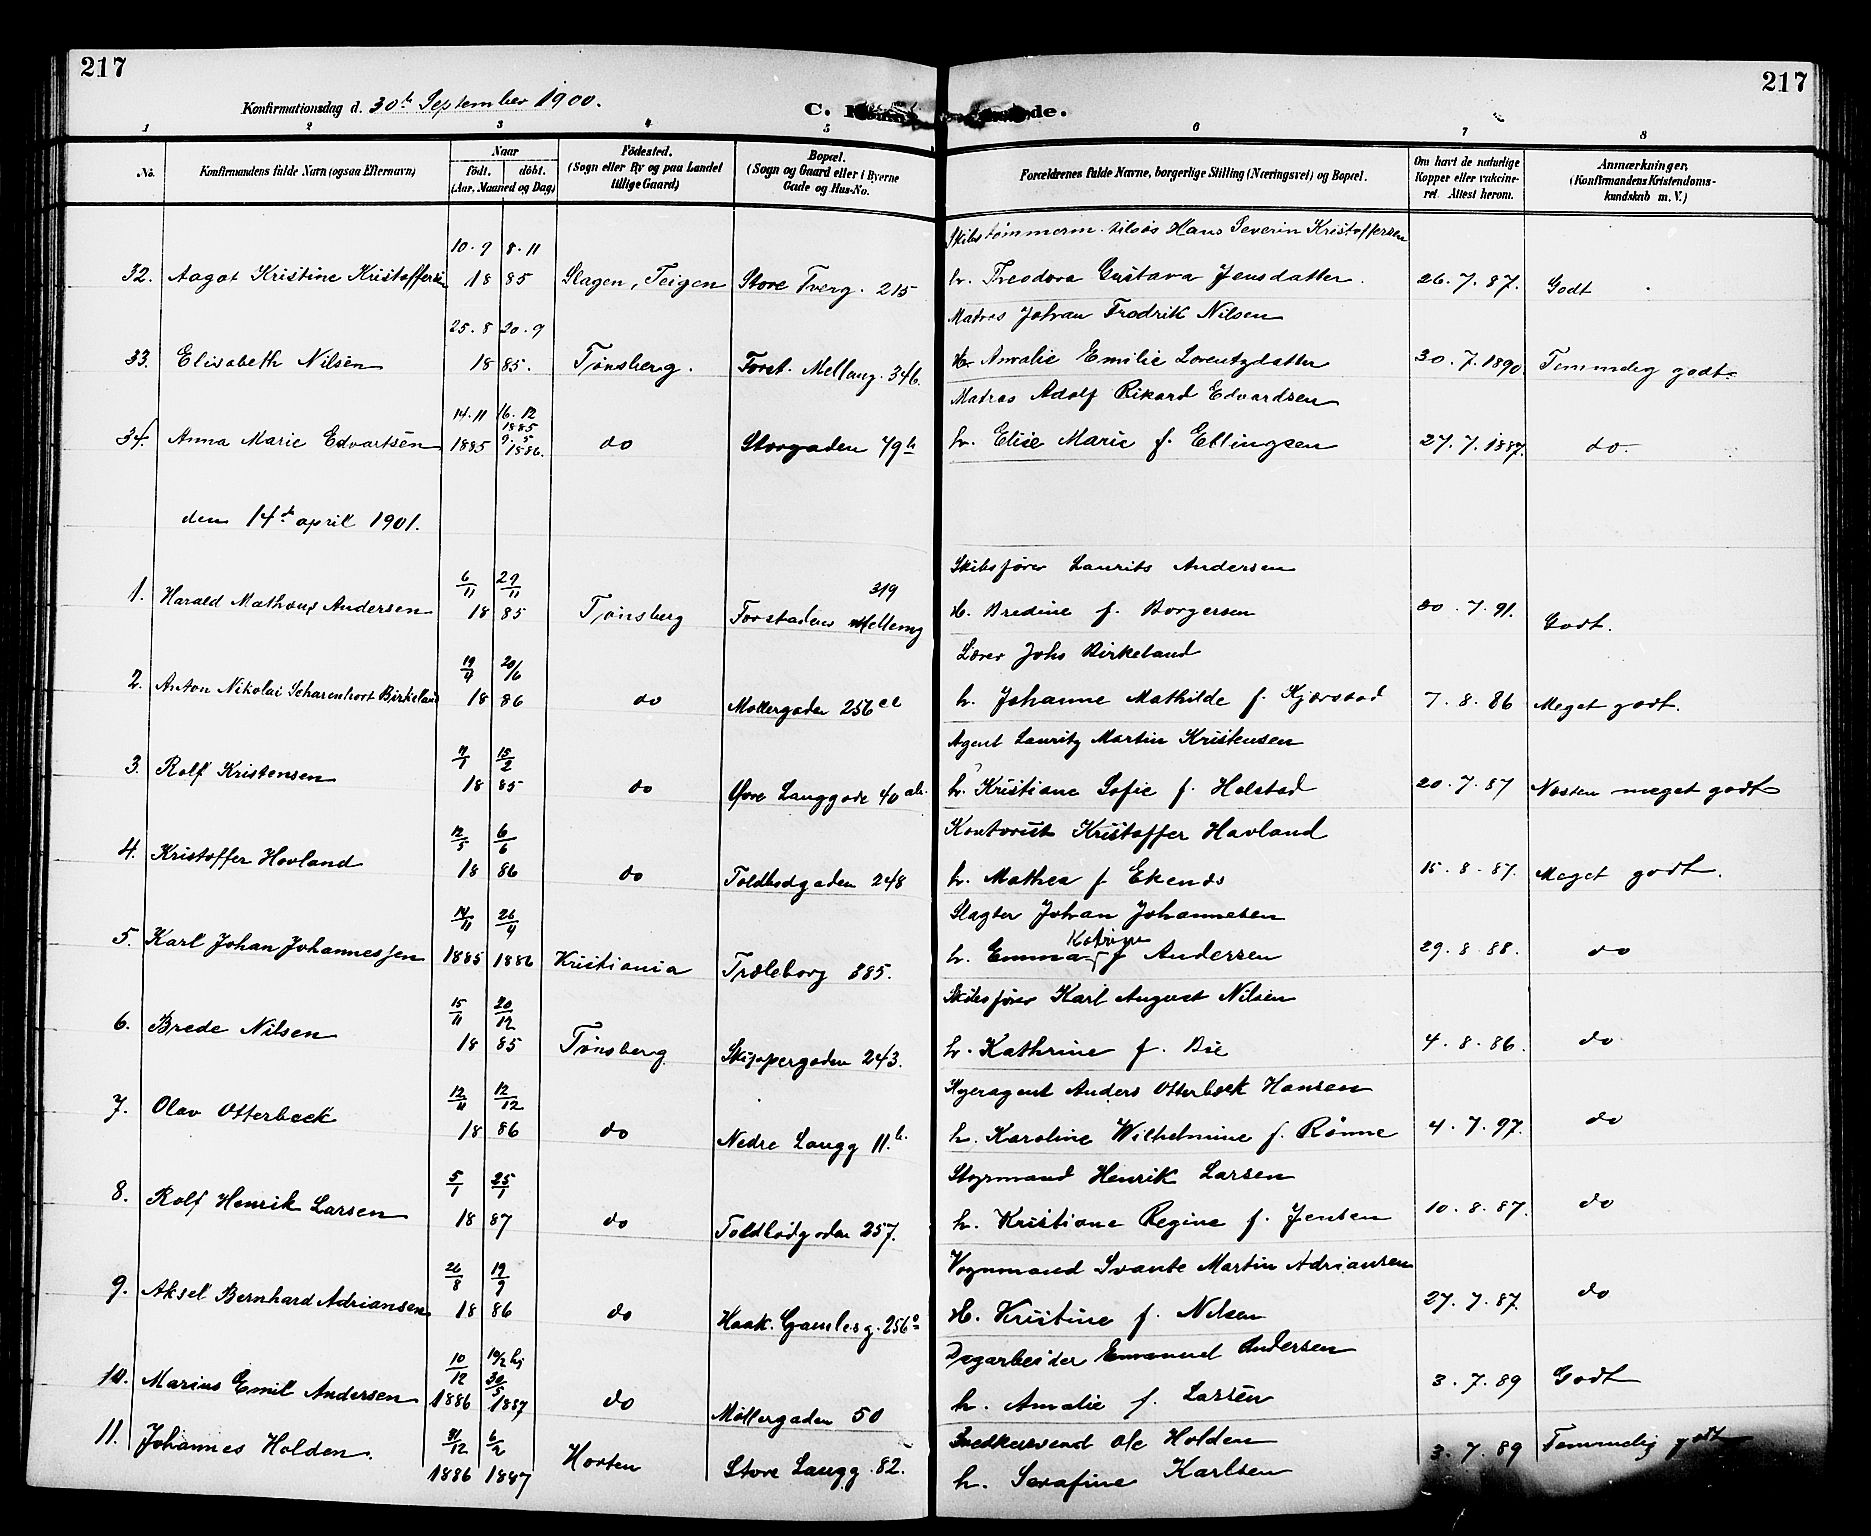 217
217
Konfirmationsdag d. 30th September 1900.
C. de.
1 2 3 4 5 6 7 8
No. Konfirmandens fulde Navn (ogsaa Efternavn) Naar født. døbt. (Aar, Maaned og Dag) Fødested. (Sogn eller By og paa Landet tillige Gaard) Bopæl. (Sogn og Gaard eller i Byerne Gade og Hus-No. Forældrenes fulde Navne, borgerlige Stilling (Næringsvei) og Bopæl. Om havt de naturlige Kopper eller vakcineret. Attest herom. Anmærkninger, (Konfirmandens Kristendomskundskab m. V.)
10.9 8.11 Skibstømmerm. Hans Severin Kristoffersen
32. Aagot Kristine Kristoffersen 18 85 Slagen, Teigen Store Tverg. 215 h. Theodora Gustava Jensdatter. 26.7.87. Godt
25.8 20.9 Matros Johan Fredrik Nilsen
33. Elisabeth Nilsen 18 85. Tønsberg. Forst. Mellang. 346. H. Amalie Emilie Lorentzdatter 30.7.1890 Temmelig godt.
14.11 16.12 1885 Matros Adolf Rikard Edvardsen
34. Anna Marie Edvartsen 1885 9.5 1886. do Storgaden 49b h. Elise Marie f. Ellingsen 27.7.1887. do.
den 14de april 1901.
6/11 29/11 319 Skibsfører Laurits Andersen
1. Harald Mathæus Andersen 18 85 Tønsberg Forstadens Mellemg H. Bredine f. Borgersen 20.7.91. Godt.
19/4 20/6 Lærer Johs Birkeland
2. Anton Nikolai Scharenhort Birkeland 18 86 do Møllergaden 256 h. Johanne Mathilde f. Kjærstad 7.8.86 Meget godt.
7/1 15/2 Agent Lauritz Martin Kristensen
3. Rolf Kristensen 18 85 do Øvre Langgade 40 ab. h. Kristiane Sofie f. Holstad 20.7.87 Næsten meget godt
12/5 6/6 Kontorist Kristoffer Havland
4. Kristoffer Hovland 18 86 do Toldbodgaden 248 h. Mathea f Ekenæs 15.8.87. Meget godt.
14/11 26/4 Slagter Johan Johannesen
5. Karl Johan Johannessen 1885 1886 Kristiania Træleborg 885. h. Emma Katrine f Andersen 29.8.88. do
15/11 20/12 Skibsfører Karl August Nilsen
6. Brede Nilsen 18 85 Tønsberg Skippergaden 243. h. Kathrine f. Bie 4.8.86. do
12/11 12/12 Hyreagent Anders Otterbeck Hansen
7. Olav Otterbeck 18 86 do Nedre Langg 11b. h. Karoline Wilhelmine f. Rønne 4.7.97. do
5/1 25/1 Styrmand Henrik Larsen
8. Rolf Henrik Larsen 18 87 do Toldbodgaden 257. h. Kristiane Regine f. Jensen 10.8.87. do
26/8 19/9 Vognmand Svante Martin Adriansen
9. Aksel Bernhard Adriansen 18 86 do Haak. Gamlesg. 256a H. Kristine f. Nilsen 27.7.87. do
10/12 19/2 hj 30/5 Dagarbeider Emanuel Andersen
10. Marius Emil Andersen 1886 1887 do Møllergaden 50 h. Amalie f. Larsen 3.7.89 Godt
31/12 6/2 Snedkersvend Ole Holden
11. Johannes Holden. 1886 1887 Horten Store Langg. 82. h. Serafine Karlsen 3.7.89 Temmelig godt